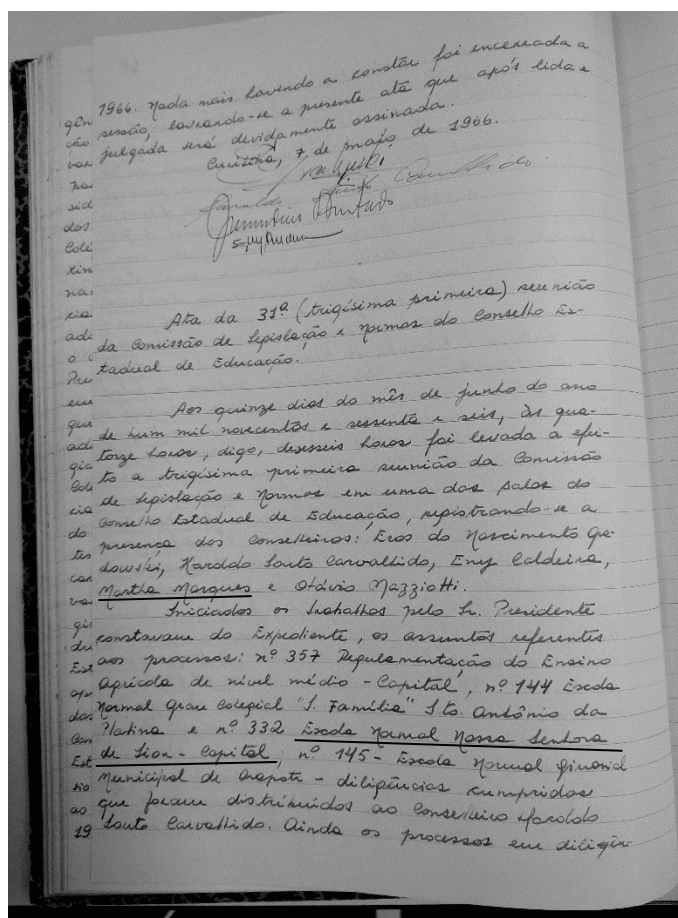 1966. Nada mais havendo a constar foi encerrada a
sessão, lavrando-se a presente ata que após lida e
julgada será devidamente assinada.
Curitiba, 7 de maio de 1966.
Ata da 31ª (trigésima primeira) reunião
da Comissão de Legislação e Normas do Conselho Es-
tadual de Educação.
Aos quinze dias do mês de junho do ano
de hum mil novecentos e sessenta e seis, às qua-
torze horas, digo, dezesseis horas foi levada a efei-
to a trigésima primeira reunião da Comissão
de Legislação e Normas em uma das salas do
Conselho Estadual de Educação, registrando-se a
presença dos Conselheiros: Eros do Nascimento Gra-
dowski, Haroldo Souto Carvalhido, Eny Caldeira,
Martha Marques e Otávio Mazziotti.
Iniciados os trabalhos pelo Sr. Presidente
constavam do Expediente, os assuntos referentes
aos processos: nº 357 Regulamentação do Ensino
Agrícola de nível médio - Capital, nº 144 Escola
Normal Grau Colegial "S. Família" Sto. Antônio da
Platina e nº 332 Escola Normal Nossa Senhora
de Sion - Capital; nº 145 - Escola Normal Ginasial
Municipal de - diligências cumpridas
que foram distribuídos ao Conselheiro Haroldo
Souto Carvalhido. Ainda os processos em diligên-